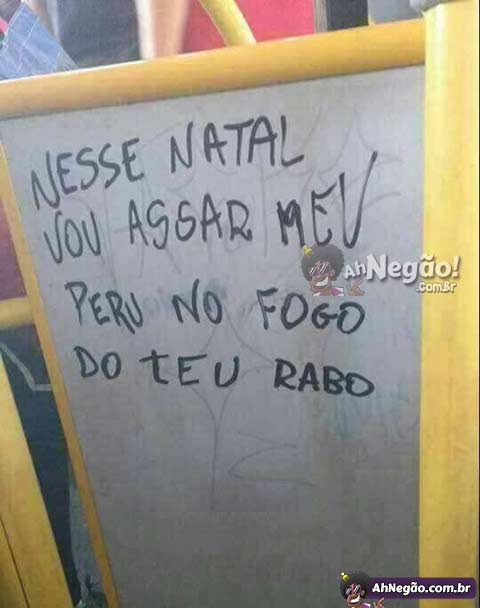 NESSE NATAL
VOU ASSAR MEU
PERU NO FOGO
DO TEU RABO
AhNegão!
.com.Br
AhNegão.com.br